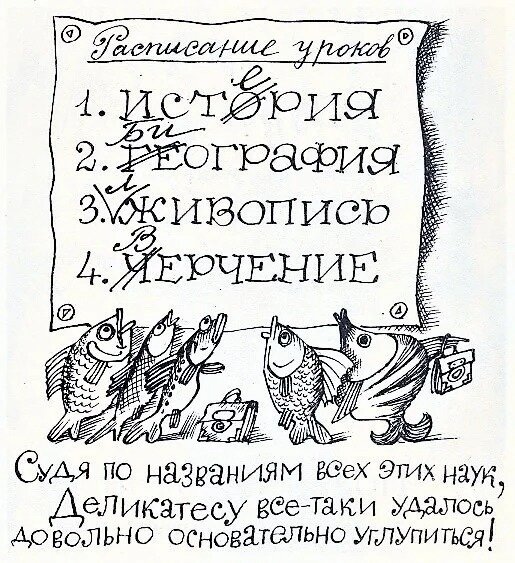 Расписание уроков
е
1. ИСТОРИЯ
БИ
2. ГЕОГРАФИЯ
Л
3. ЖИВОПИСЬ
В
4. ЧЕРЧЕНИЕ
Судя по названиям всех этих наук,
Деликатесу все-таки удалось
довольно основательно углупиться!